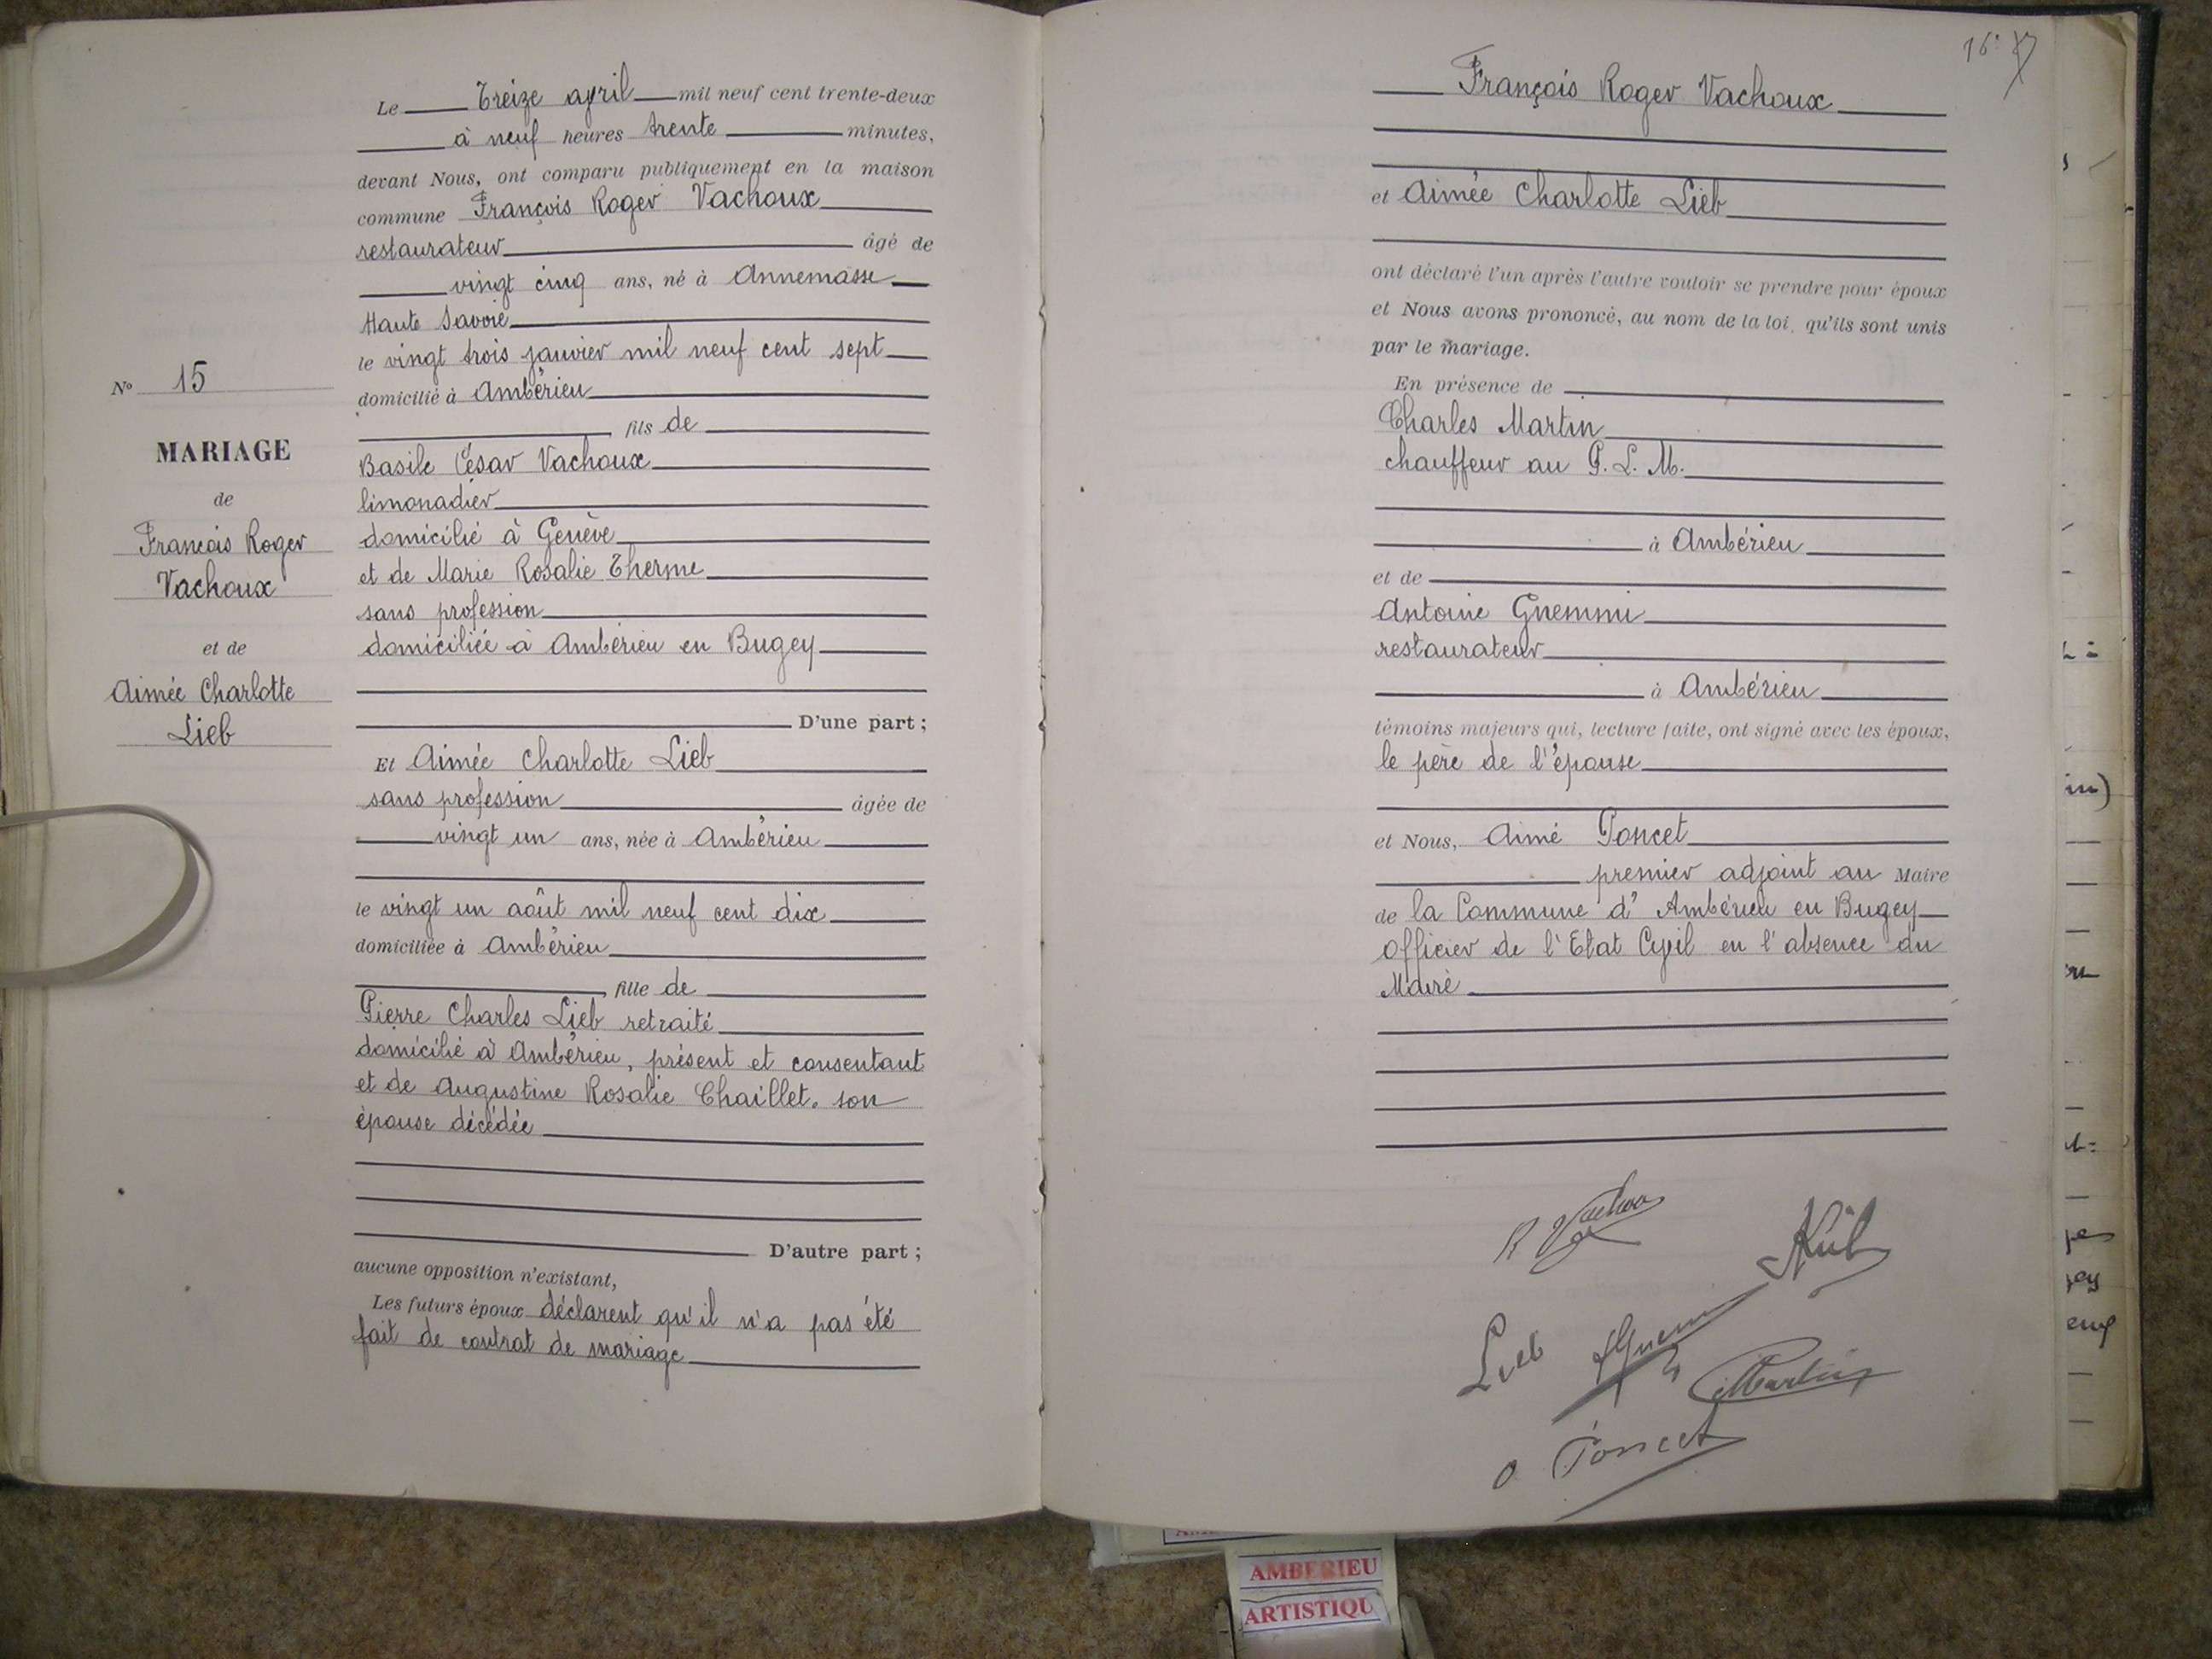 Le Treize avril mil neuf cent trente-deux
à neuf heures trente minutes,
devant Nous, ont comparu publiquement en la maison
commune François Roger Vachoux
restaurateur âgé de
vingt cinq ans, né à Annemasse
Haute Savoie
le vingt trois janvier mil neuf cent sept
domicilié à Ambérieu
fils de
Basile César Vachoux
limonadier
domicilié à Genève
et de Marie Rosalie Therme
sans profession
domiciliée à Ambérieu en Bugey
D'une part ;
Et Aimée Charlotte Lieb
sans profession âgée de
vingt un ans, née à Ambérieu
le vingt un août mil neuf cent dix
domiciliée à Ambérieu
fille de
Pierre Charles Lieb retraité
domicilié à Ambérieu, présent et consentant
et de Augustine Rosalie Chaillet. son
épouse décédée
D'autre part ;
aucune opposition n'existant,
Les futurs époux déclarent qu'il n'a pas été
fait de contrat de mariage
N° 15
MARIAGE
de
François Roger
Vachoux
et de
Aimée Charlotte
Lieb
16
François Roger Vachoux
et Aimée Charlotte Lieb
ont déclaré l'un après l'autre vouloir se prendre pour époux
et Nous avons prononcé, au nom de la loi, qu'ils sont unis
par le mariage.
En présence de
Charles Martin
chauffeur au P. L. M.
à Ambérieu
et de
Antoine Gnemmi
restaurateur
à Ambérieu
témoins majeurs qui, lecture faite, ont signé avec les époux,
le père de l'épouse
et Nous, Aimé Poncet
premier adjoint au Maire
de la Commune d'Ambérieu en Bugey
officier de l'Etat Civil en l'absence du
Maire
R Vachoux
Lieb
Lieb
CMartin
A Poncet
AMBERIEU
ARTISTIQU